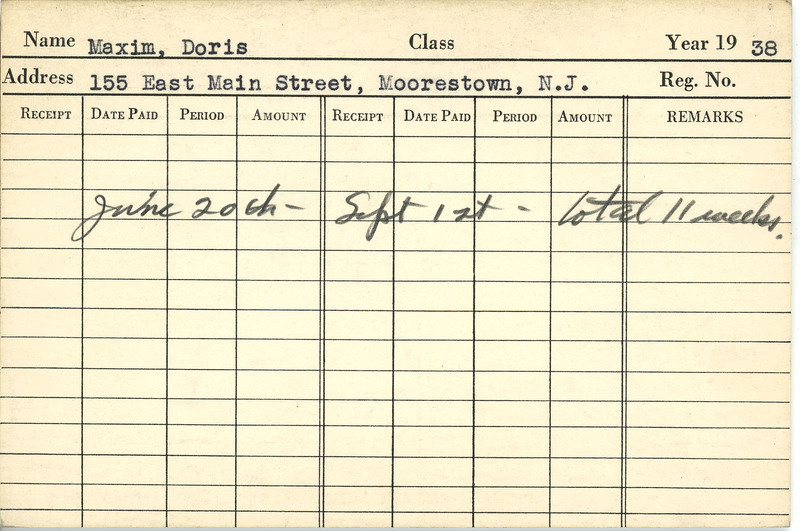 Name Maxim, Doris Class Year 19 38
Address 155 East Main Street, Moorestown, N.J. Reg. No.
RECEIPT DATE PAID PERIOD AMOUNT RECEIPT DATE PAID PERIOD AMOUNT REMARKS
June 20th - Sept 1st - total 11 weeks.